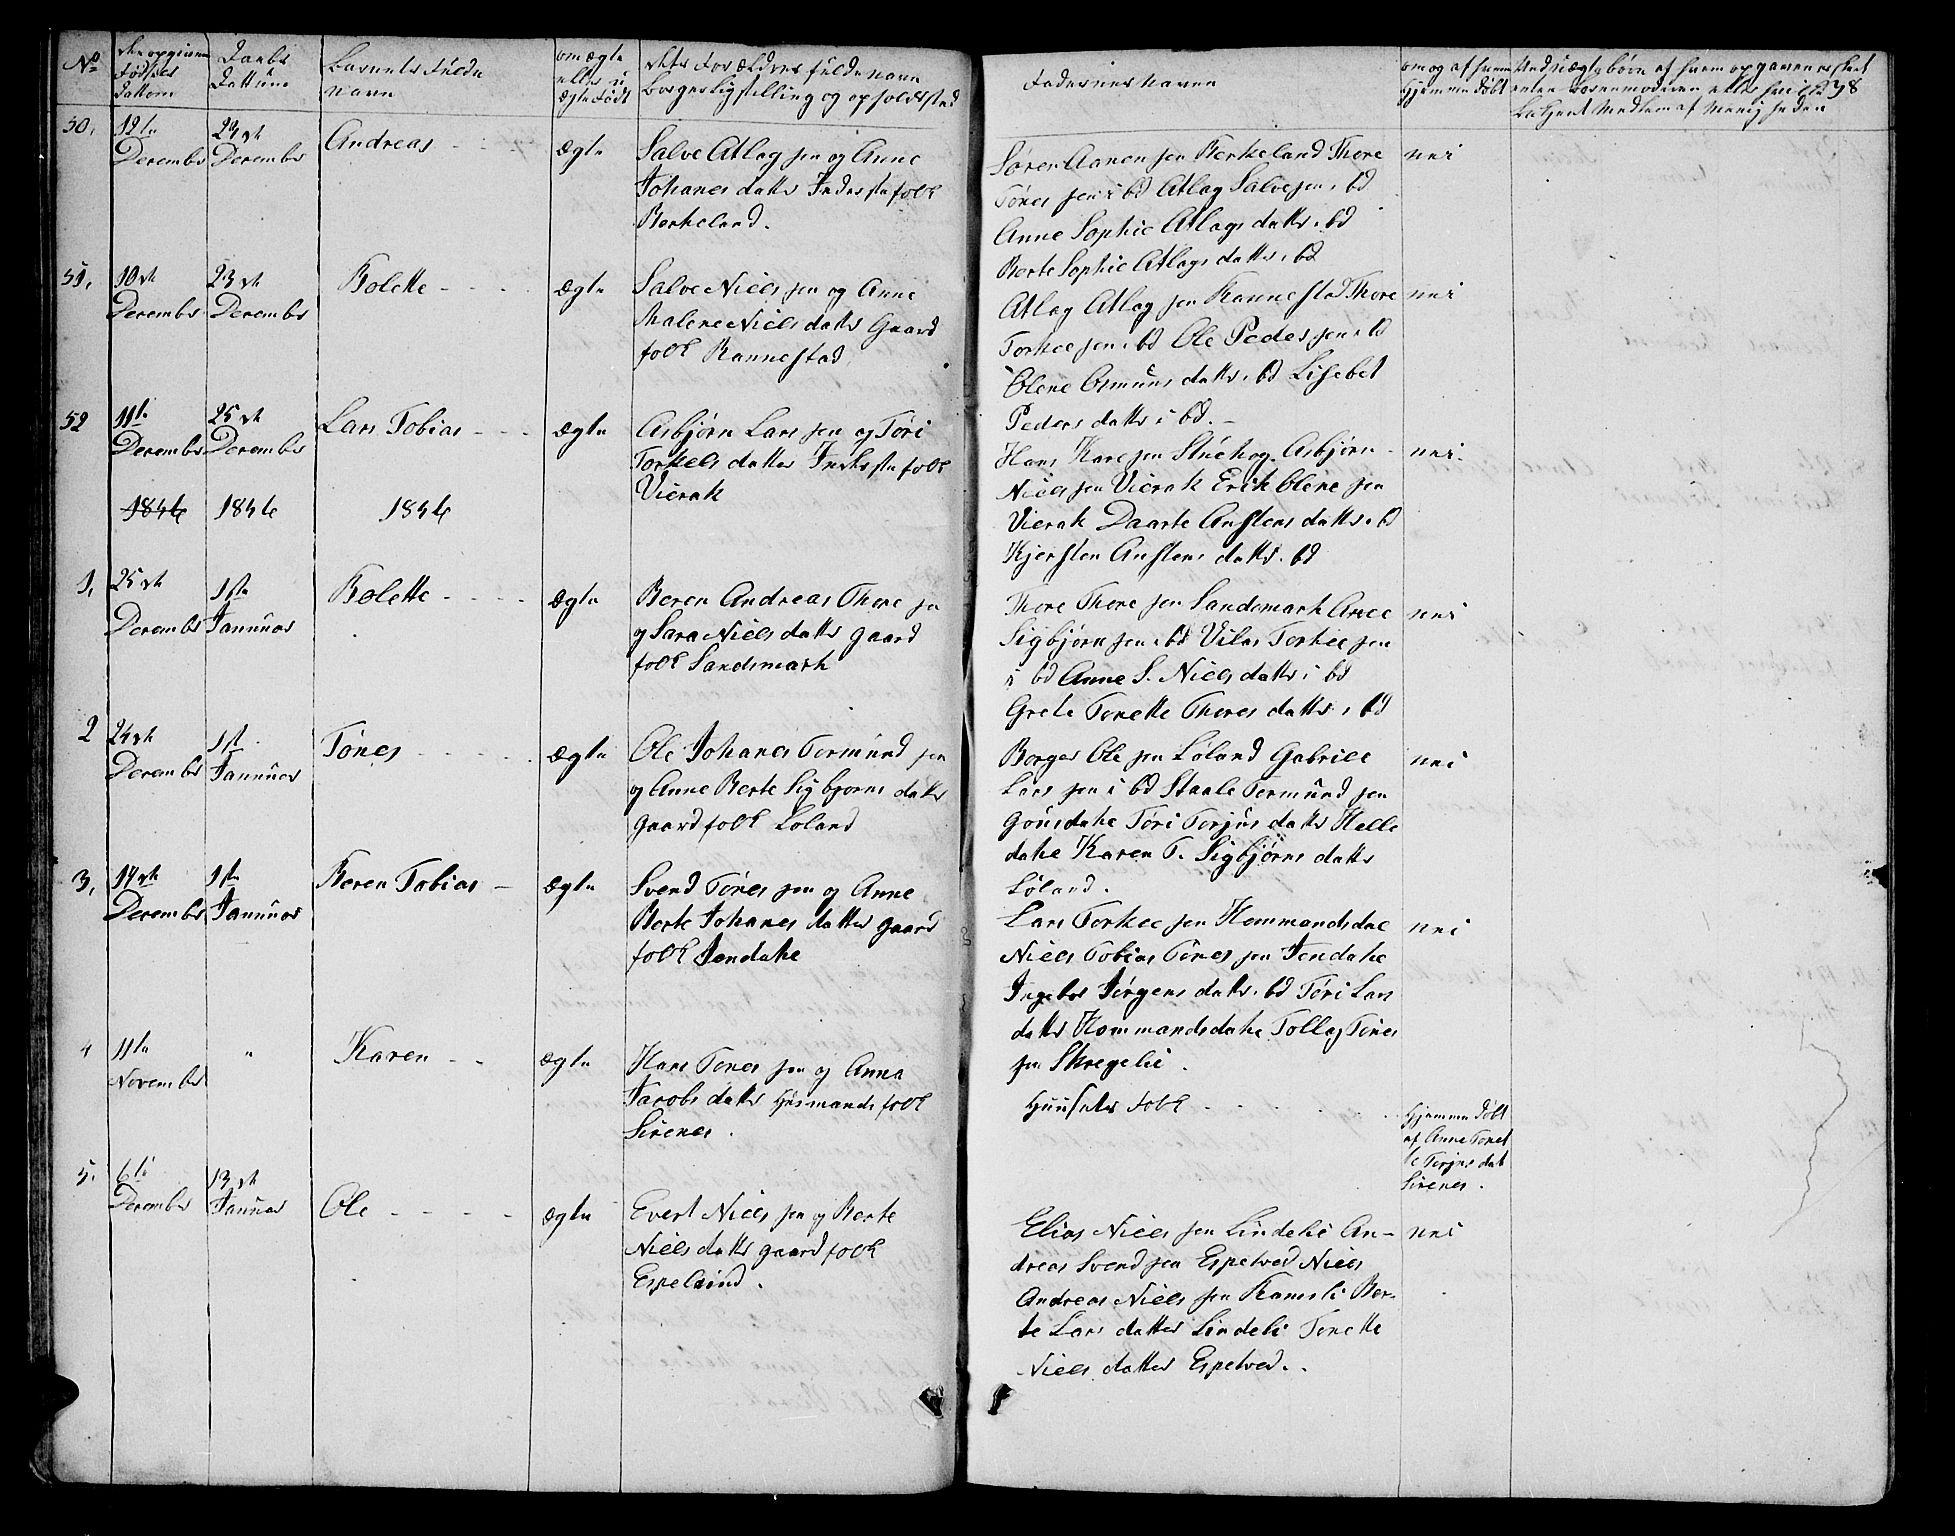 No
Daabs
Dattum
Barnets fulde
navn
Faddernes navne
50.
12te
Decembr
23de
Decembr
Andreas
ægte
Salve Atlag sen og Anne
Johanes datter Inderstefolk
Berkeland.
Søren Aanen sen Berkeland Thore
Tønes sen i bd Atlag Salvesen i bd
Anne Sophie Atlags datter i bd
Berte Sophie Atlags datter i bd
nei
51.
10de
Decembr
23de
Decembr
Bolette
ægte
Salve Niels sen og Anne
Malene Niels datter Gaard
folk Rannestad
Atlag Atlag sen Rannestad Thore
Torkel sen i bd Ole Peder sen i bd
Olene Osmuns datter i bd Lisebet
Peders datter i bd.
nei
52
11te
Decembr
25de
Decembr
Lars Tobias
ægte
Asbjørn Lars sen og Tøri
Torkels datter Inderstefolk
Vierak
Hans Karl sen Asbjørn
Niels sen Vierak Erik Olene sen
Vierak Daarte Anstens datter i bd
Kjersten Anstens datter i bd
nei.
1846
1846
1846
1,
25de
Decembr
1ste
Januuar
Bolette
ægte
Beren Andreas Thore sen
og Sara Niels datter gaard
folk Sandsmark
Thore Thore sen Sandsmark Arne
Sigbjørn sen i bd Vilas Torkel sen
i bd Anne S. Niels datter i bd
Grete Tonette Thores datter i bd
nei
2
24de
Decembr
1ste
Januuar
Tønes
ægte
Ole Johanes Tormund sen
og Anne Berte Sigbjørns datter
gaardfolk Loland
Borger Ole sen Loland Gabriel
Lars sen i bd Staale Tormund sen
Tøri Torjus datter Helle
dahe Karen T. Sigbjørns datter
Loland.
nei
3,
14de
Decembr
1ste
Januuar
Beren Tobias
ægte
Svend Tønes sen og Anne
Berte Johanes datter gaard
folk Jondahe
Lars Torkel sen Hommandsdal
Niels Tobias Tønes sen Jondahe
Ingebor Jørgens datter i bd Tøri Lars
datter Hommandsdahe Tollag Tønes
sen Skregelie.
nei
4
11te
November
"
Karen
ægte
Hans Tønes sen og Anna
Jacobs datter Husmandsfolk
Sirenes.
Huusets folk
Hjemme døbt
af Anne Tonet
te Torjus dat
Sirenes.
5.
6te
Decembr
13de
Januuar
Ole
ægte
Evert Niels sen og Berte
Niels datter gaardfolk
Espelund.
Elias Niels sen Lindeli An-
dreas Svend sen Espetved Niels
Andreas Niels sen Ramsli Ber-
te Lars datter Lindeli Tonette
Niels datter Espetved.
nei